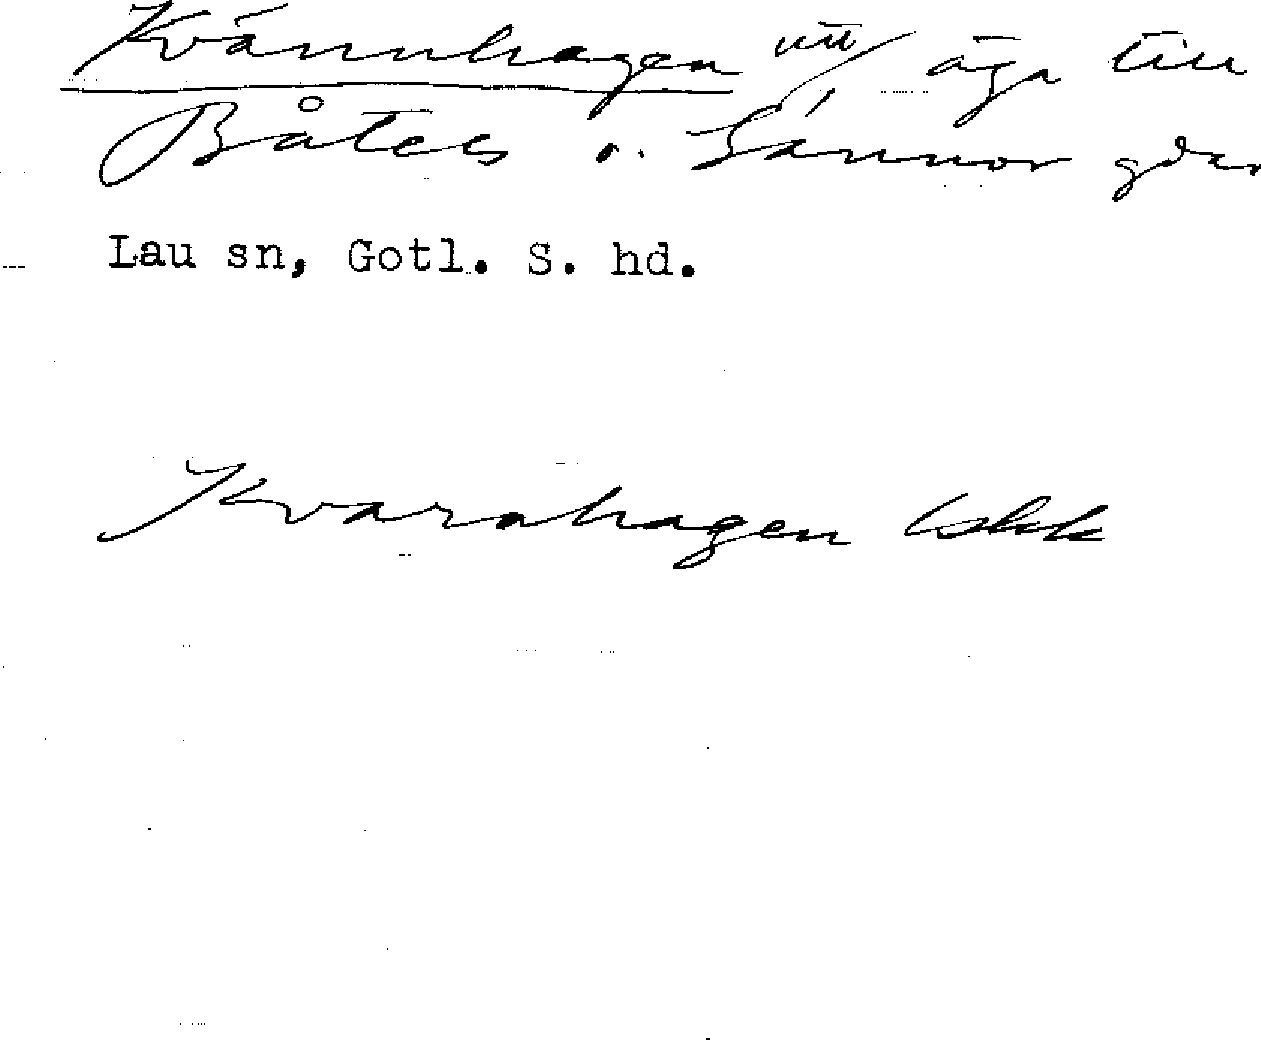 Kvännhagen utt/ äga till
Båtels o. Sännor gdar
Lau sn, Gotl. S. hd.
Kvarnhagen